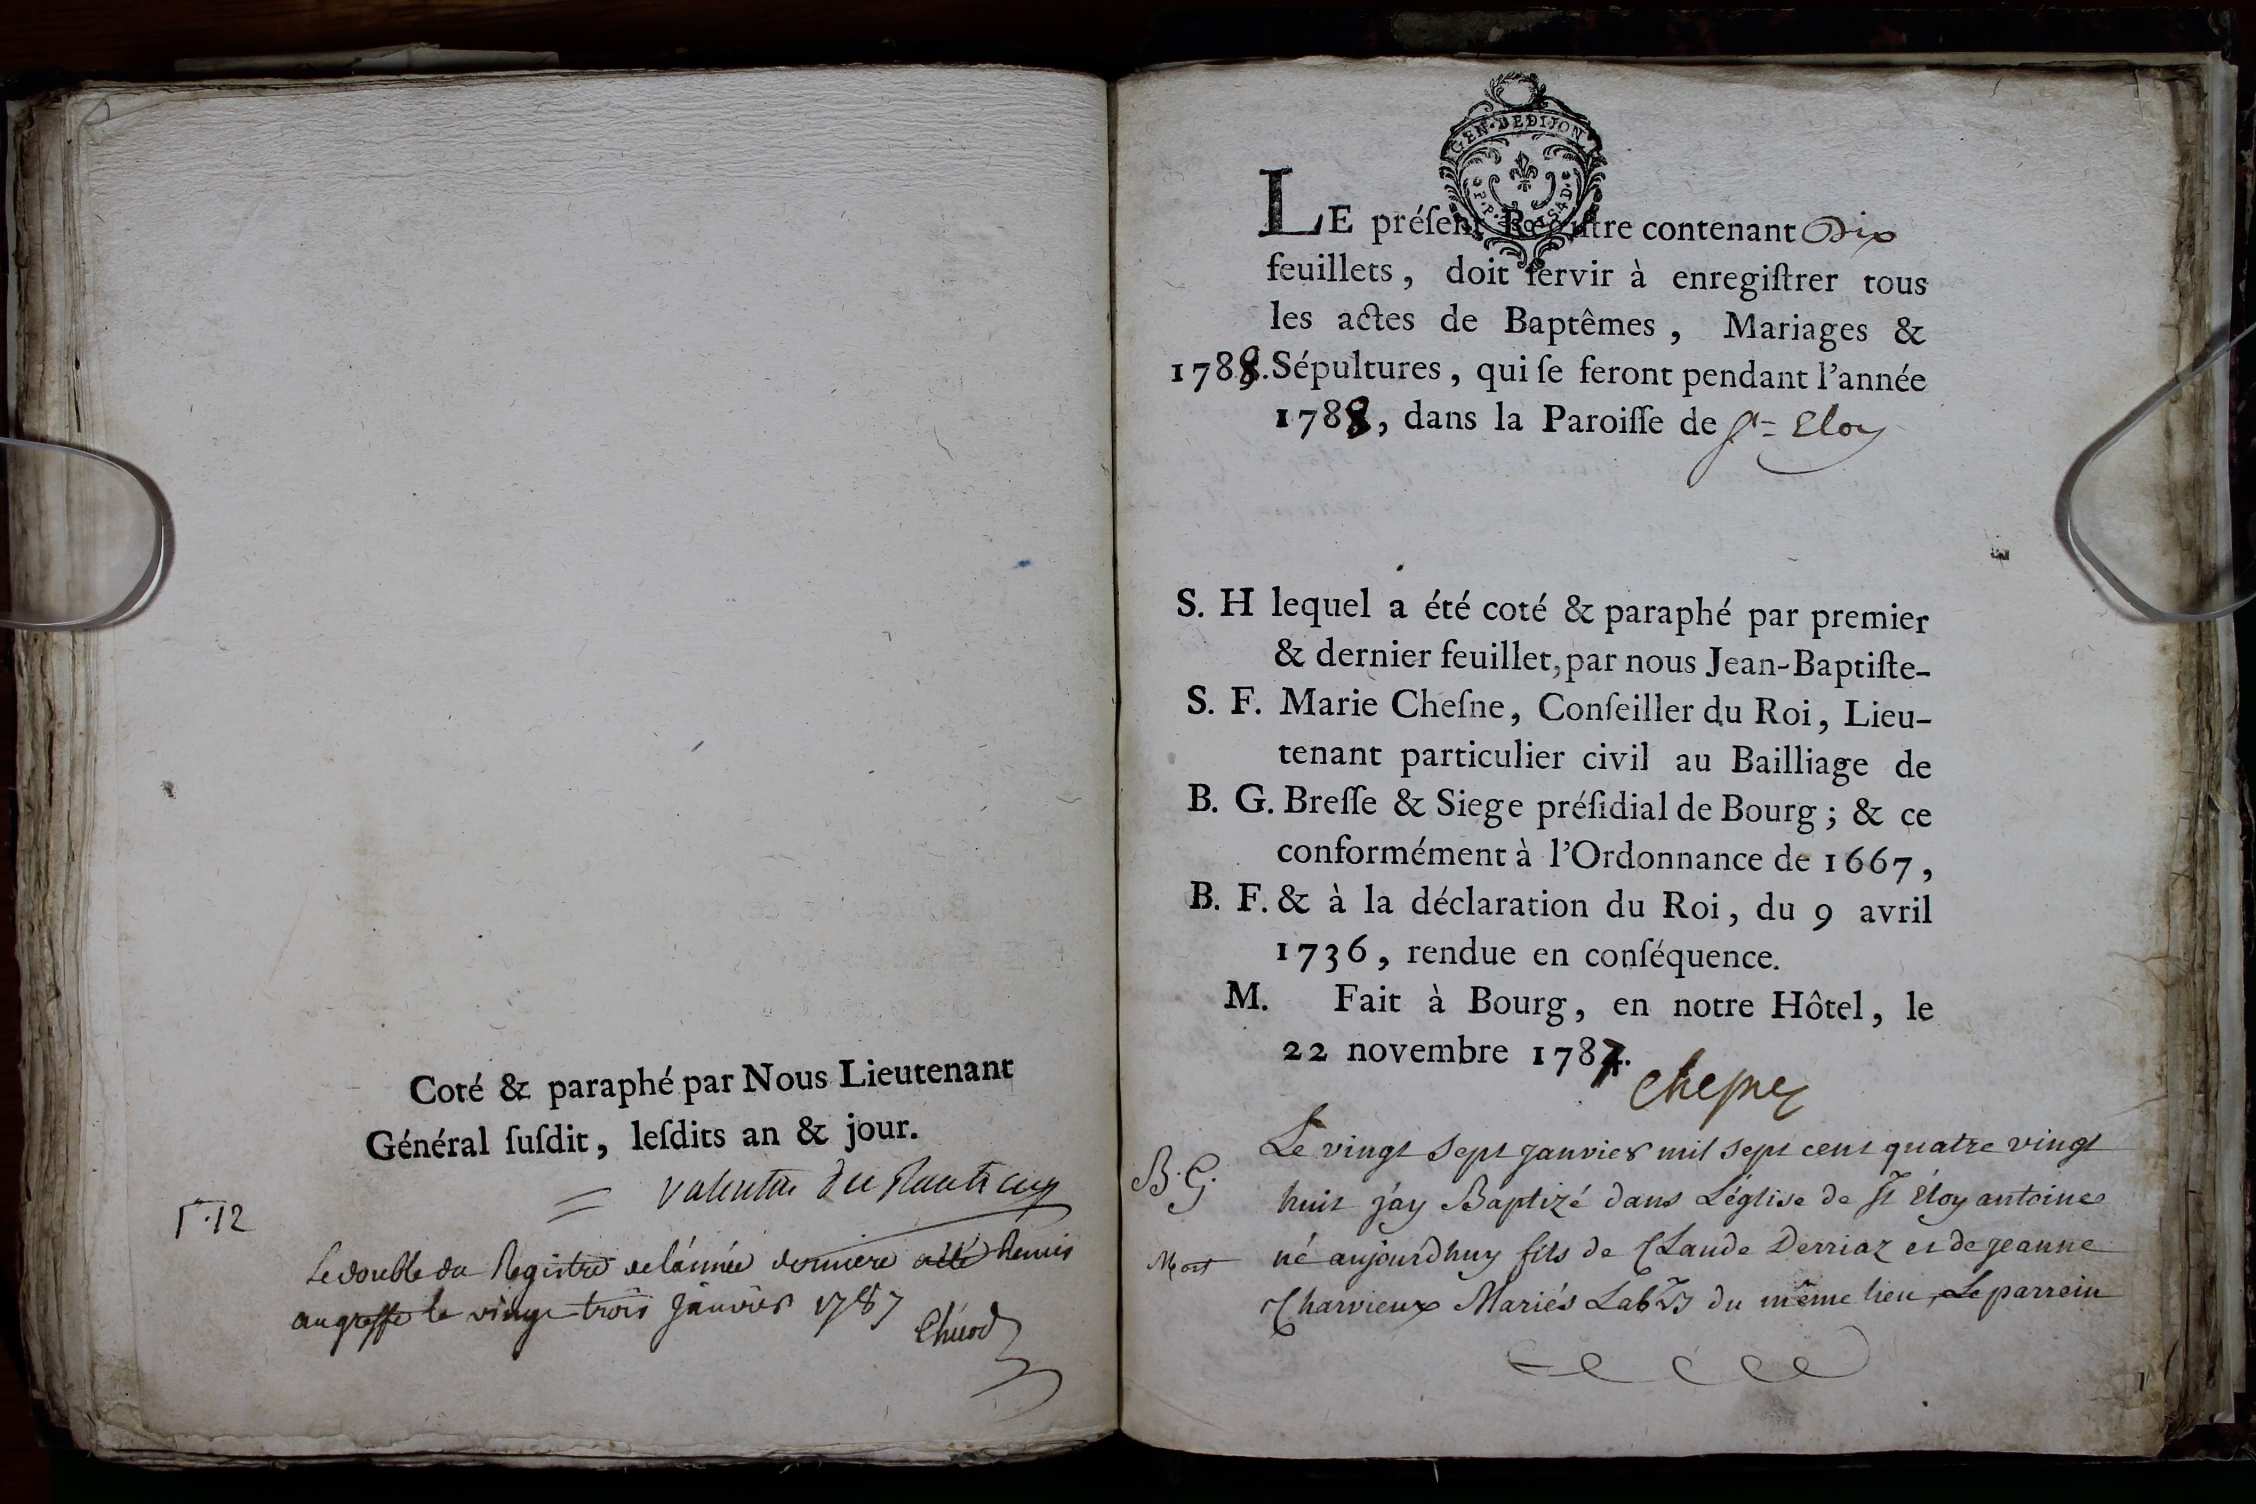 Coté & paraphé par Nous Lieutenant
Général ſuſdit, leſdits an & jour.
F. 12
Le double du Registre de l'année derniere a été Remis
au greffe le vingt trois janvier 1787
GEN·DEDIJON
LE préſent Regiſtre contenant Dix
feuillets, doit ſervir à enregiſtrer tous
les actes de Baptêmes, Mariages &
1788. Sépultures, qui ſe feront pendant l'année
1788, dans la Paroiſſe de St= Eloy
S. H lequel a été coté & paraphé par premier
& dernier feuillet, par nous Jean-Baptiſte-
S. F. Marie Cheſne, Conſeiller du Roi, Lieu-
tenant particulier civil au Bailliage de
B. G. Breſſe & Siege préſidial de Bourg; & ce
conformément à l'Ordonnance de 1667,
B. F. & à la déclaration du Roi, du 9 avril
1736, rendue en conſéquence.
M. Fait à Bourg, en notre Hôtel, le
22 novembre 1787.
Chesne
Le vingt Sept janvier mil sept cent quatre vingt
B. G. huit j'ay Baptizé dans L'église de St Eloy antoine
Mort né aujourdhuy fils de Claude Derriaz et de jeanne
Charvieux Mariés Labrs du même lieu, Le parrein
1